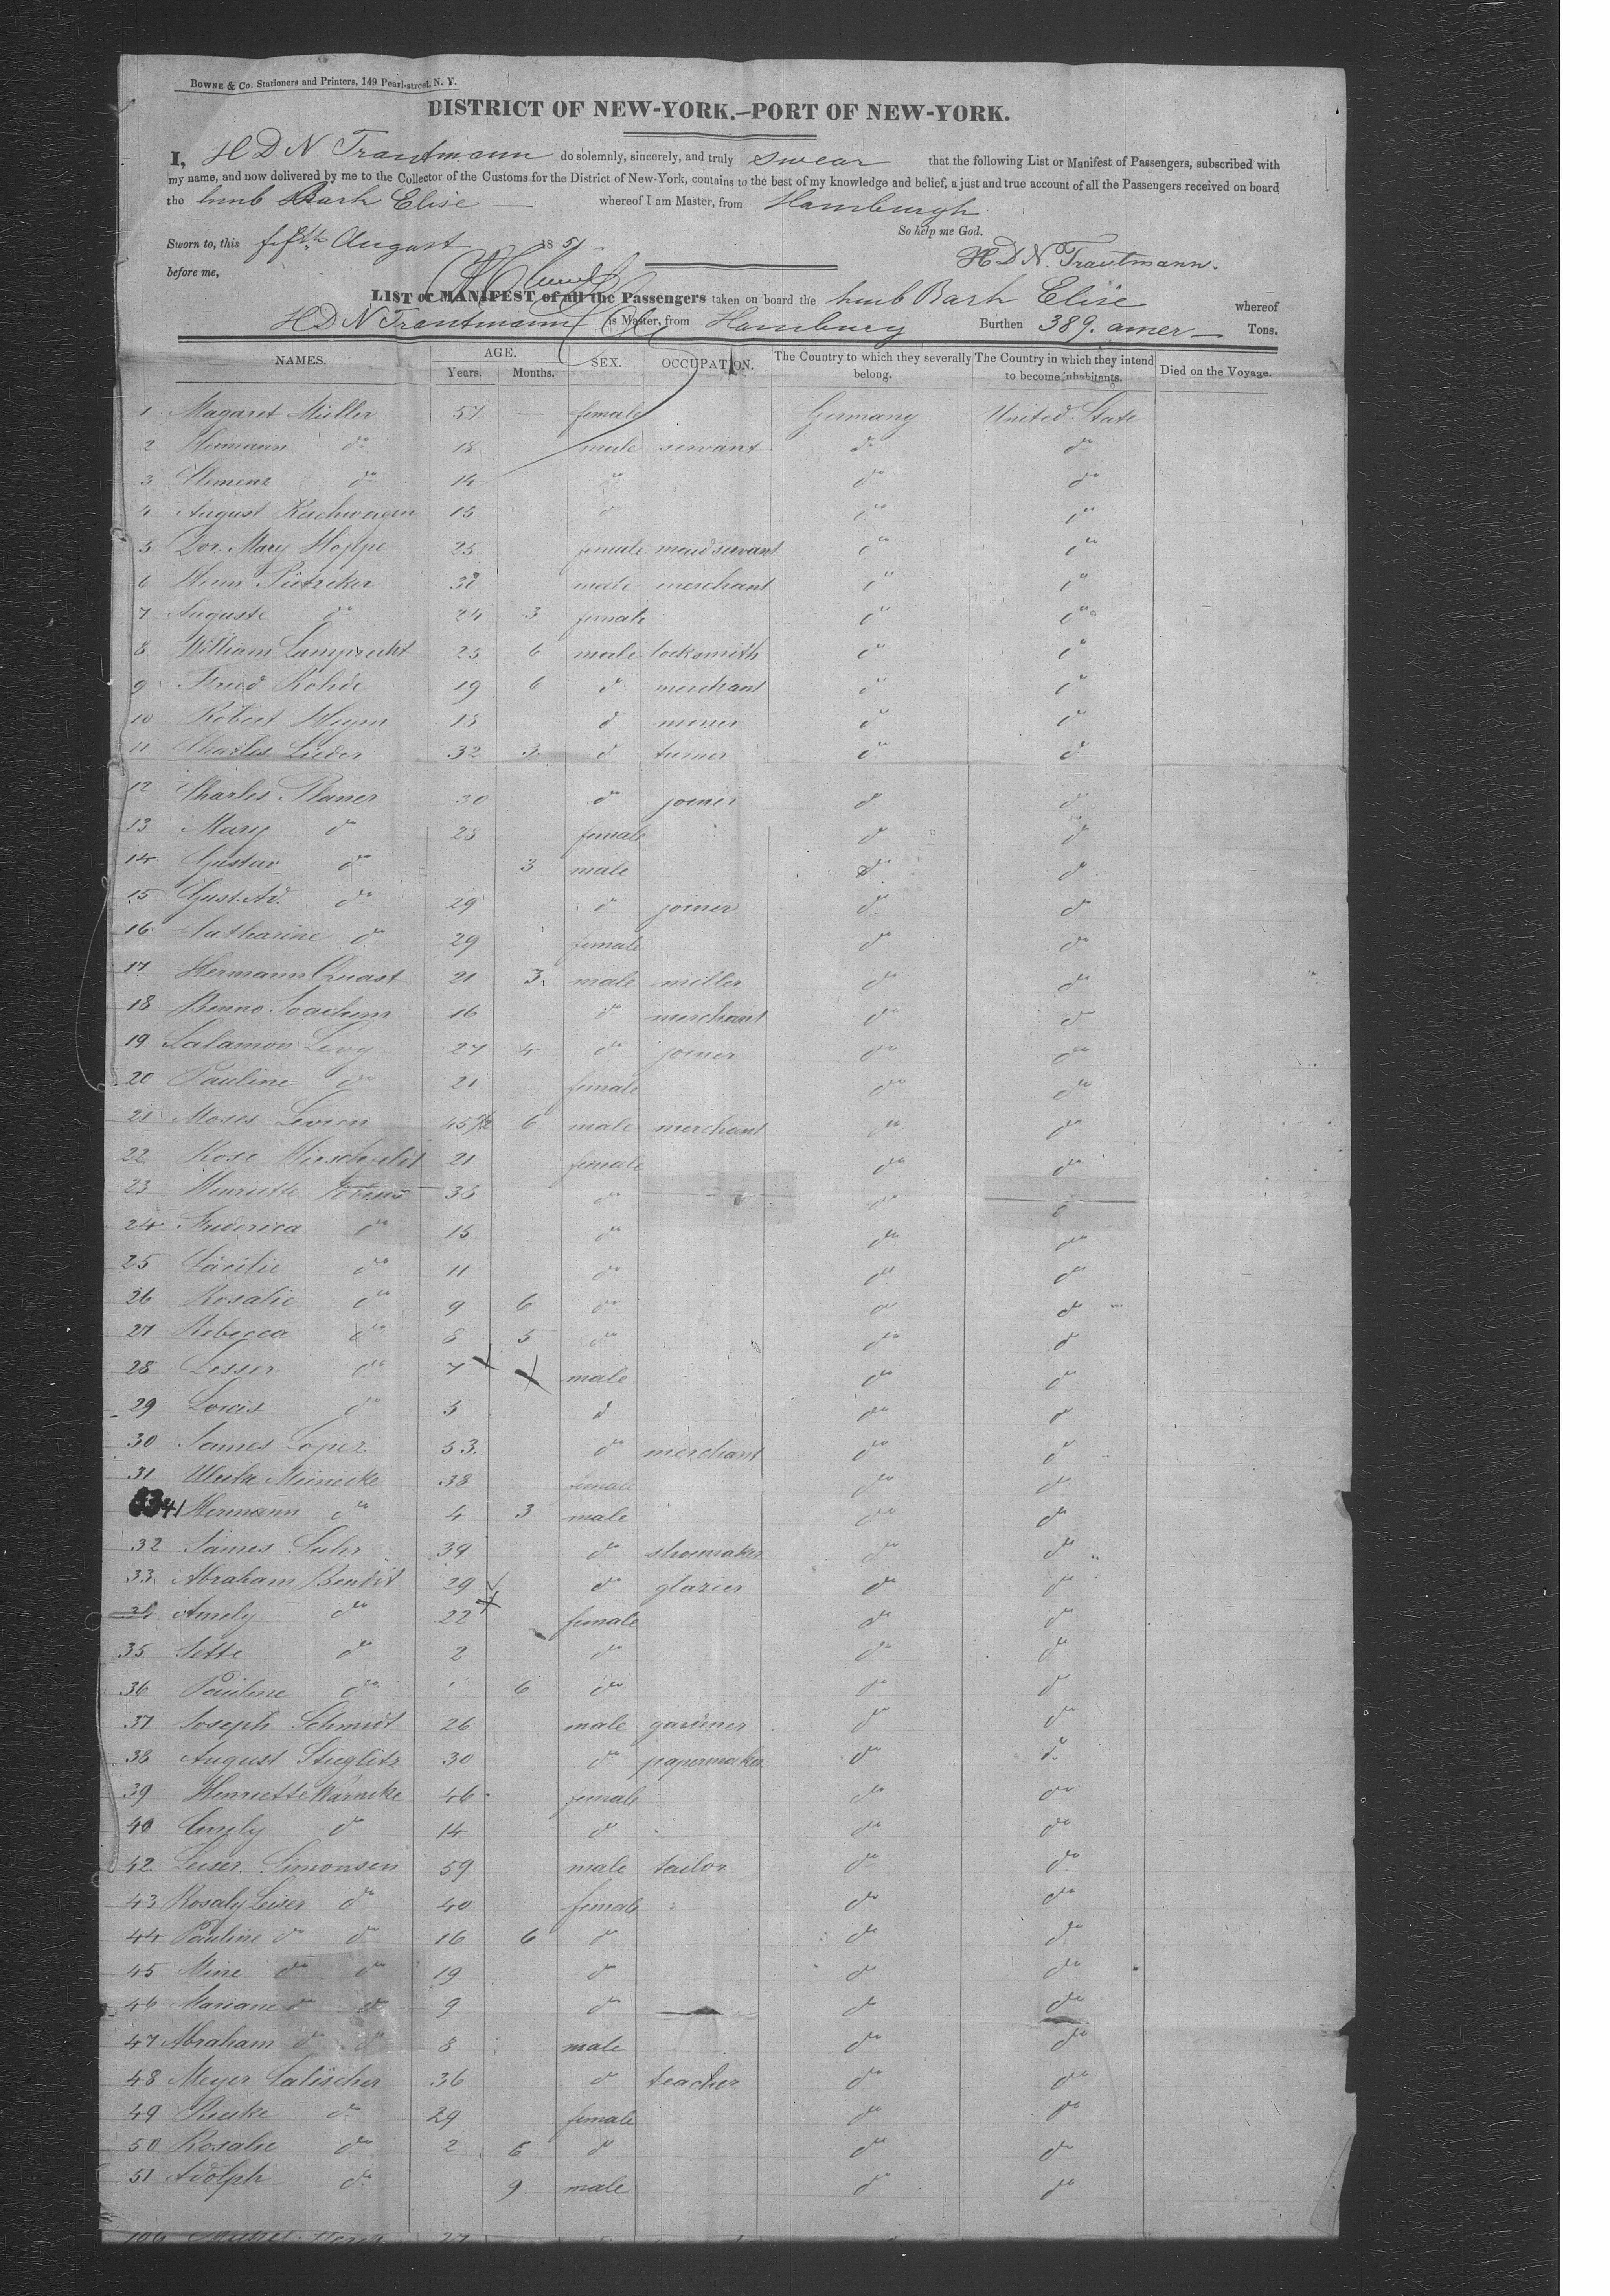 BOWNE & Co. Stationers and Printers, 149 Pearl-street, N. Y.
DISTRICT OF NEW-YORK.—PORT OF NEW-YORK.
I, H D N Trautmann do solemnly, sincerely, and truly swear that the following List or Manifest of Passengers, subscribed with
my name, and now delivered by me to the Collector of the Customs for the District of New-York, contains to the best of my knowledge and belief, a just and true account of all the Passengers received on board
the hmb Bark Elise — whereof I am Master, from Hamburgh
So help me God.
Sworn to, this fifth August 1851
H D N. Trautmann.
before me,
LIST or MANIFEST of all the Passengers taken on board the hmb Bark Elise whereof
H D N Trautmann is Master, from Hamburg Burthen 389. amer — Tons.
NAMES. AGE. Years. Months. SEX. OCCUPATION. The Country to which they severally belong. The Country in which they intend to become inhabitants. Died on the Voyage.
1 Magaret Müller 57 — female Germany United State
2 Hermann do 18 male servant do do
3 Clemenz do 14 do do do
4 August 15 do do do
5 Dor. Mary Hoppe 25 female maidservant do do
6 male merchant do do
7 Auguste do 24 3 female do do
8 William Lamprecht 25 6 male locksmith do do
9 Fried Rohde 19 6 d merchant do do
10 Robert d miner do do
11 Charles Lüder 32 3 d turner do d
12 Charles Planer 30 do joiner d d
13 Mary do 28 female d d
14 Gustav do 3 male do d
15 Gust. Ad. do 29 d joiner d d
16 Catharine do 29 female do do
17 Hermann Quast 21 3 male miller d do
18 Benno Joachim 16 do merchant do do
19 Salamon Levy 27 4 do joiner do do
20 Pauline do 21 female do do
21 Moses Levien 45 6 male merchant do do
22 Rose 21 female do do
23 Henriette do do d
24 Frederica do 15 do do do
25 Cäcilie do 11 do do do
26 Rosalie do 9 6 do do do
27 Rebecca do 8 5 do do d
28 Lesser do 7 male do do
29 Lowis do 5 d do do
30 James Lopez 53. do merchant do d
31 Meinecke 38 female do d
41 Hermann do 4 3 male do do
32 James Suhr 39 do shoemaker do do
33 Abraham Bendit 29 do glazier do do
34 Amely do 22 female do do
35 Jette do 2 do do d
36 Pauline do 1 6 do do d
37 Joseph Schmidt 26 male gardener d do
38 August Stieglitz 30 do papermaker do d
39 Henriette Warncke 46 female do do
40 Emely d 14 d do do
42 Leiser Simonsen 59 male tailor do do
43 Rosaly Leiser do 40 female do do
44 Pauline do do 16 6 do do do
45 Mine do do 19 do do do
46 Mariane do do 9 do do do
47 Abraham d d 8 male do do
48 Meyer Calischer 36 d teacher do do
49 do 29 female do do
50 Rosalie do 2 6 d do do
51 Adolph do 9 male do do